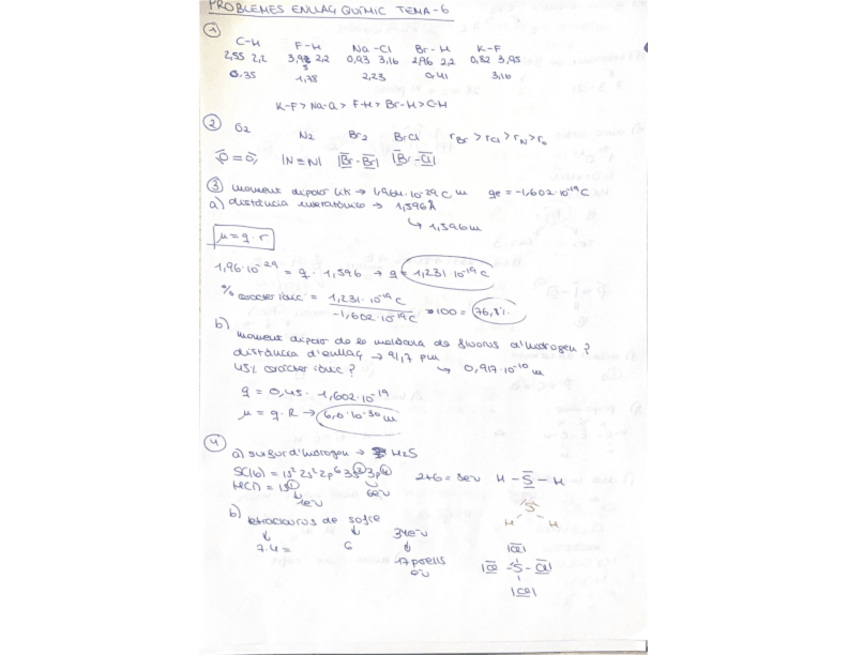 PROBLEMES ENLLAÇ QUÍMIC TEMA-6
①
C-H F-H Na-Cl Br-H K-F
2,55 2,2 3,98 2,2 0,93 3,16 2,96 2,2 0,82 3,95
0,35 1,78 2,23 0,41 3,16
K-F > Na-Cl > F-H > Br-H > C-H
② O2 N2 Br2 BrCl rBr > rCl > rN > ro
O=O |N≡N| |Br-Br| |Br-Cl|
③ moment dipolar → 10-29 C m qe = -1,602·10-19 C
a) distància interatòmica → 1,596Å
↳ 1,596 m
μ = q · r
1,96·10-29 = q · 1,596 → q = 1,231·10-19 C
% caràcter iònic = 1,231·10-19 C / -1,602·10-19 C · 100 = 76,8%
b)
moment dipolar de la molècula de fluorur d'hidrogen?
distància d'enllaç → 91,7 pm
45% caràcter iònic? ↳ 0,917·10-10 m
q = 0,45 · 1,602·10-19
μ = q·R → 6,6·10-30 m
④
a) sulfur d'hidrogen → H2S
S(16) = 1s2 2s2 2p6 3s2 3p4 2+6 = 8ev H-S-H
H(1) = 1s1 6ev
1ev S
H H
b) tetraclorur de sofre
↓ ↓ 34ev
7·4= 6 ↓
17 parells
ev
|Cl|
|Cl-S-Cl|
|Cl|